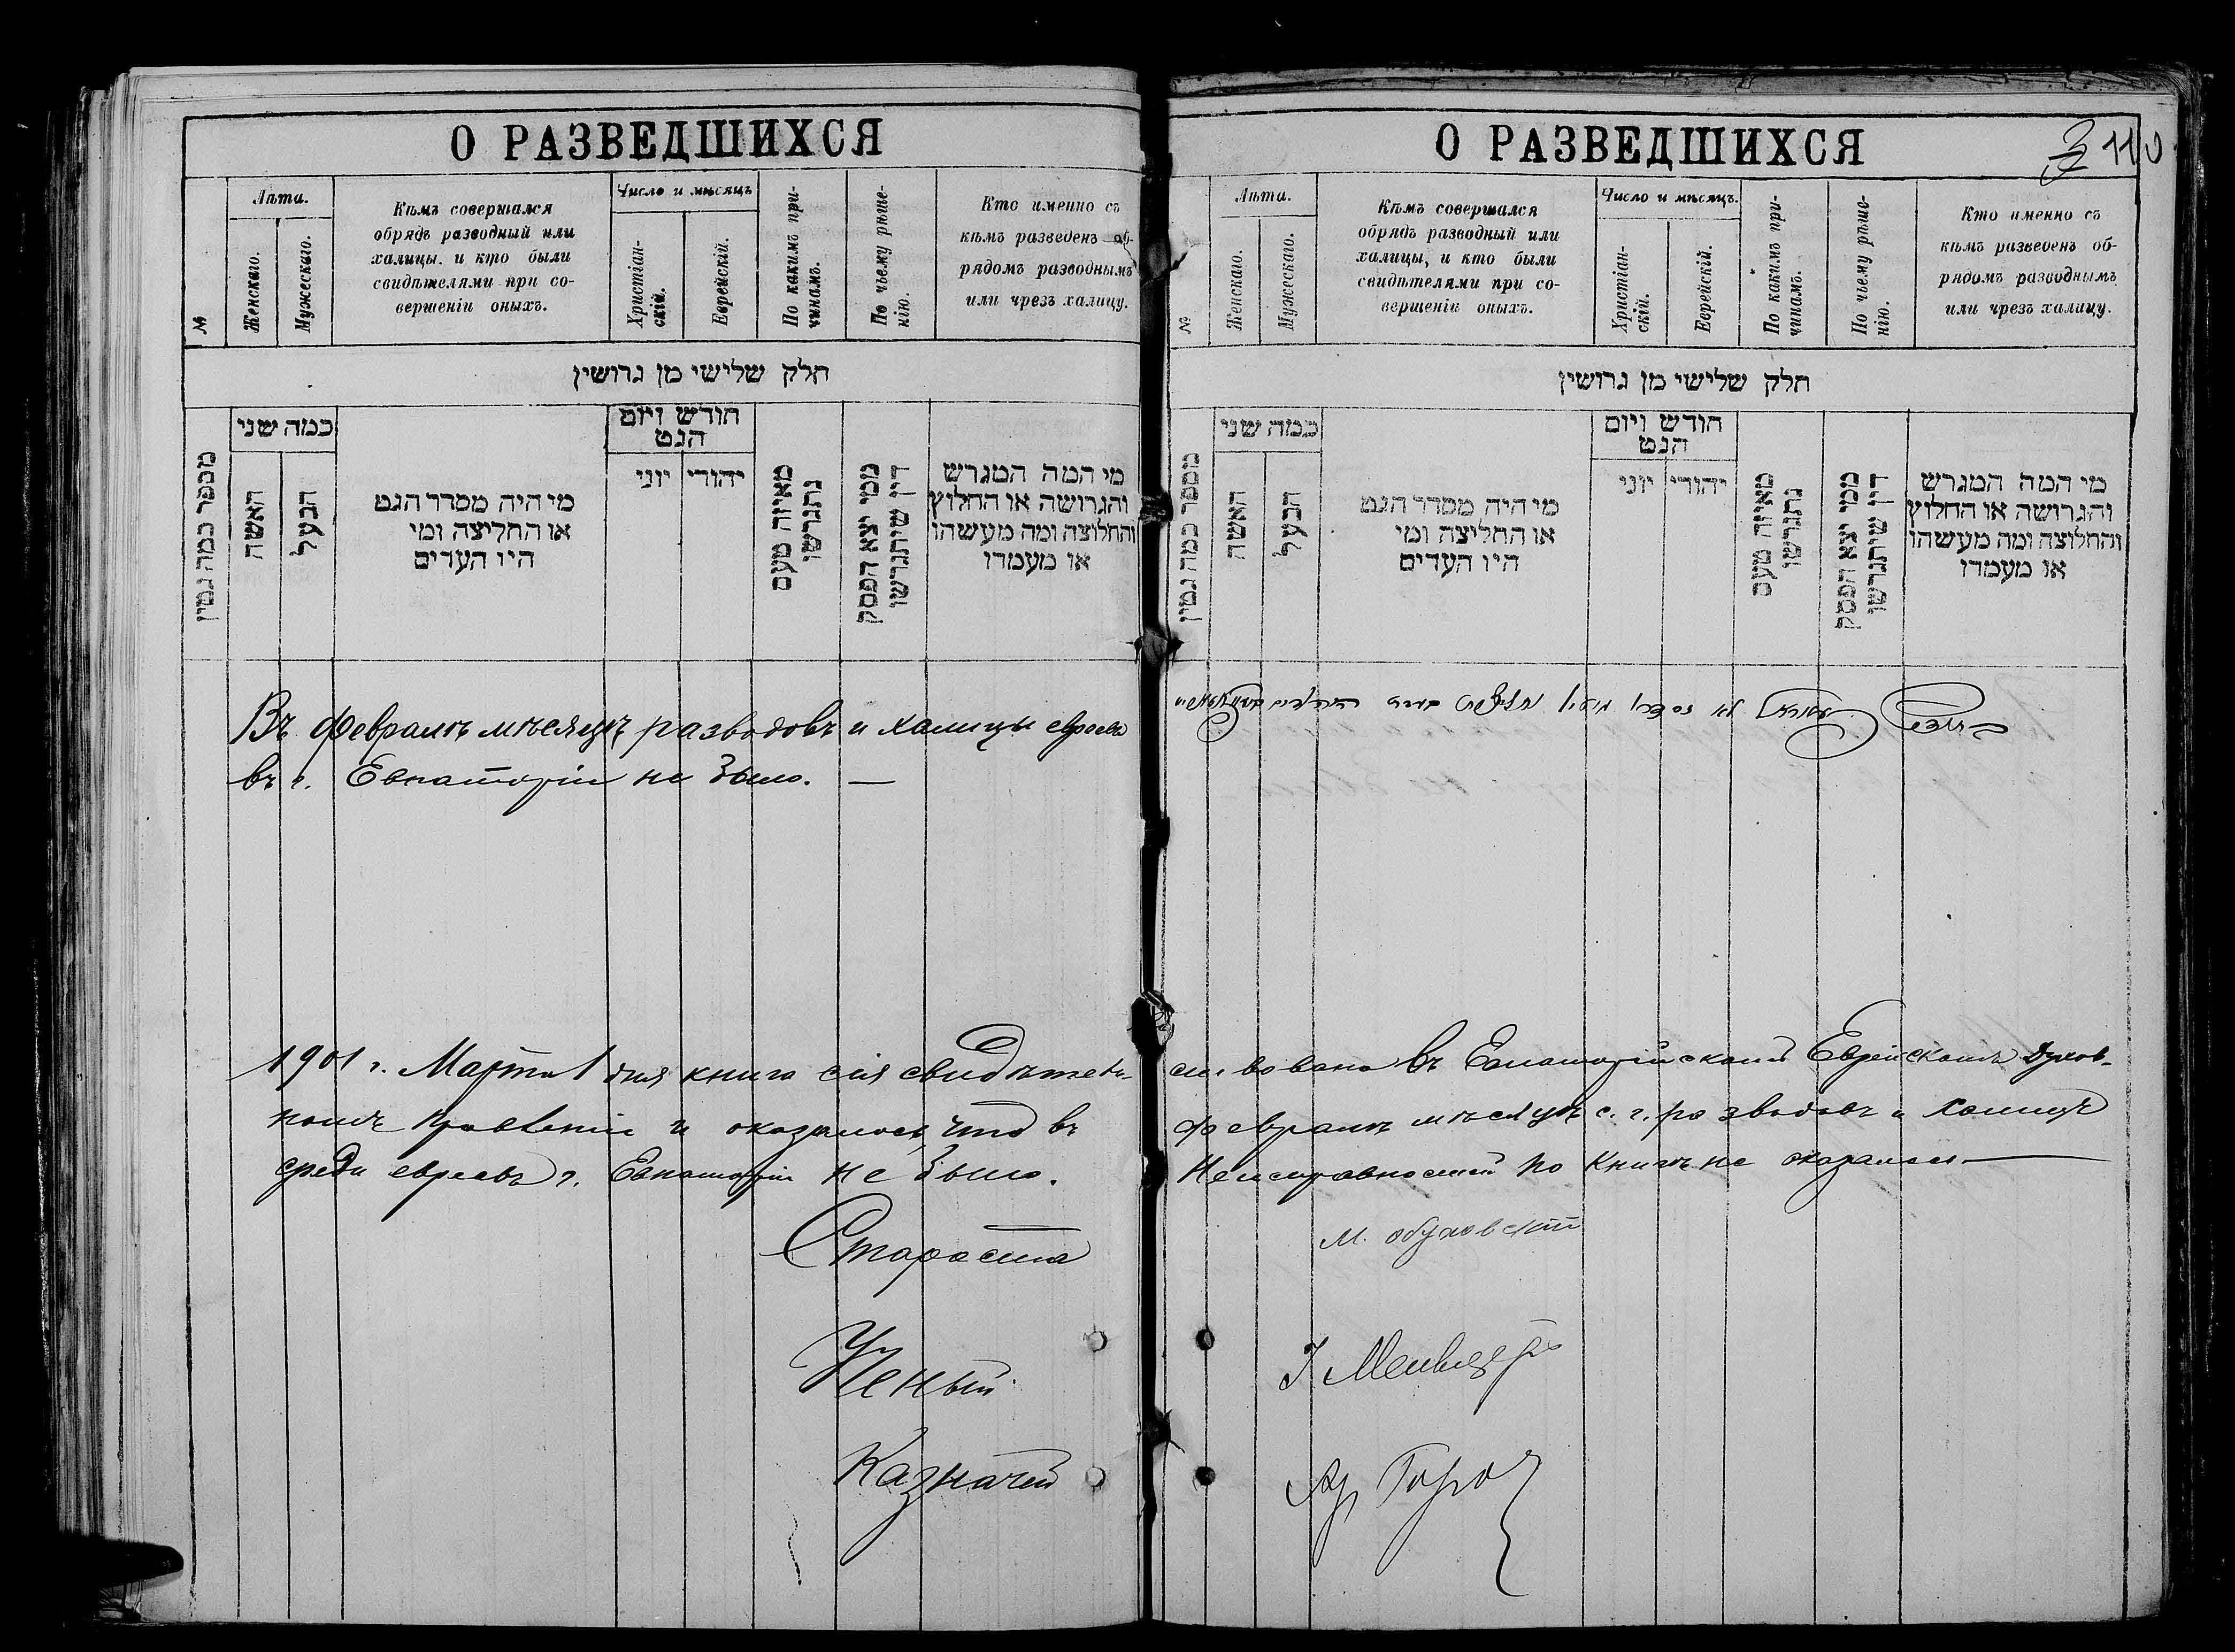 О РАЗВЕДШИХСЯ
№
Лѣта.
Женскаго.
Мужескаго.
Кѣмъ совершался
обрядъ разводный или
халицы, и кто были
свидѣтелями при со-
вершеніи оныхъ.
Число и мѣсяцъ
Христіан-
скій.
Еврейскій.
По какимъ при-
чинамъ.
По чьему рѣше-
нію.
Кто именно съ
кѣмъ разведенъ об-
рядомъ разводнымъ
или чрезъ халицу.
חלק שלישי מן גרושין
מספר כמה גטין
כמה שני
האשה
הבעל
מי היה מסדר הגט
או החליצה ומי
היו העדים
חודש ויום
הגט
יוני
יהודי
מאיזה טעם
נתגרשו
ממי יצא הפסק
דין שיתגרשו
מי המה המגרש
והגרושה או החלוץ
והחלוצה ומה מעשהו
או מעמדו
Въ февралѣ мѣсяцѣ разводовъ и халицы евреевъ
въ г. Евпаторіи не было. —
1901 г. Марта 1 дня книга сія свидѣтель-
номъ Правленіи и оказалось, что въ
среди евреевъ г. Евпаторіи не было.
Староста
Ученый
Казначей
О РАЗВЕДШИХСЯ
110
№
Лѣта.
Женскаго.
Мужескаго.
Кѣмъ совершался
обрядъ разводный или
халицы, и кто были
свидѣтелями при со-
вершеніи оныхъ.
Число и мѣсяцъ.
Христіан-
скій.
Еврейскій.
По какимъ при-
чинамъ.
По чьему рѣше-
нію.
Кто именно съ
кѣмъ разведенъ об-
рядомъ разводнымъ
или чрезъ халицу.
חלק שלישי מן גרושין
מספר כמה גטין
כמה שני
האשה
הבעל
מי היה מסדר הגט
או החליצה ומי
היו העדים
חודש ויום
הגט
יוני
יהודי
מאיזה טעם
נתגרשו
ממי יצא הפסק
דין שיתגרשו
מי המה המגרש
והגרושה או החלוץ
והחלוצה ומה מעשהו
או מעמדו
ствована въ Евпаторійскомъ Еврейскомъ Духов-
февралѣ мѣсяцѣ с. г. разводовъ и халицъ
Неисправностей по книгѣ не оказалось —
М.